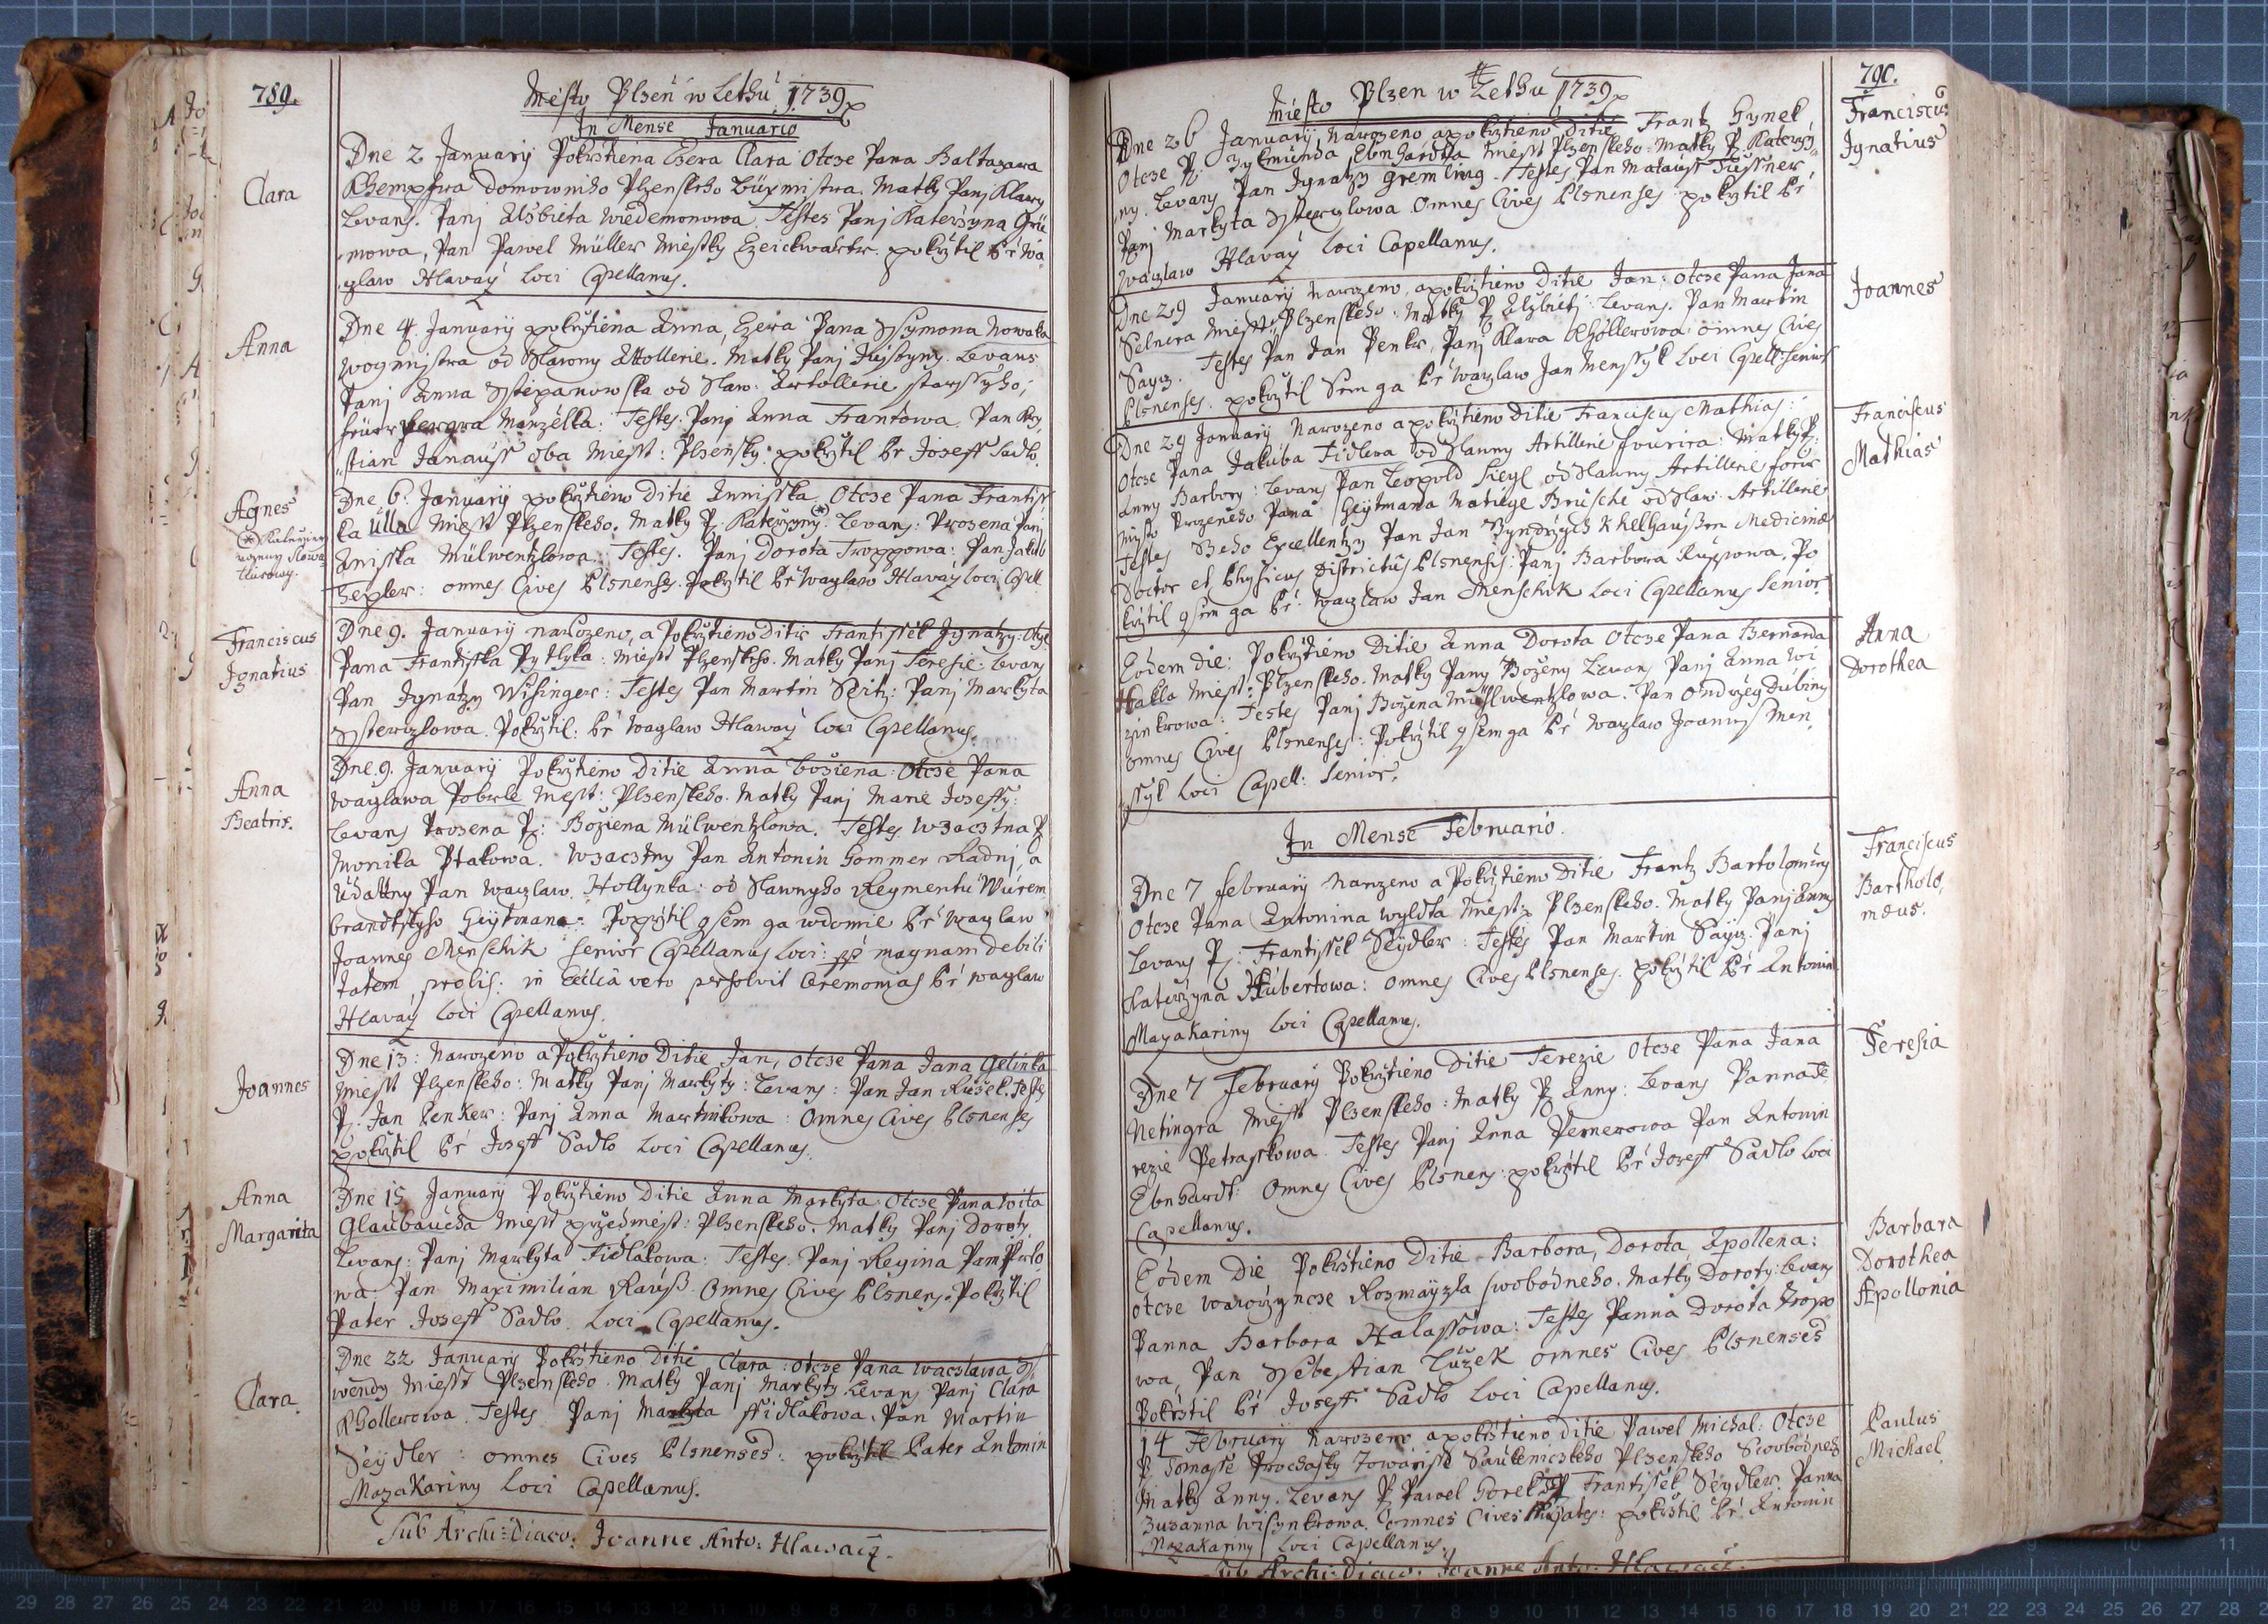 789.
Miesto Plzeń w Lethu 1739
In Mense Januario
Clara
Dne 2 January Pokrztiena Czera Clara Otcze Pana Baltazara
Khempfra domowniho Plzenskeho Bürmistra. Matky Panj Klary
Levans. Panj Alsbieta Wiedemonowa Testes Panj Katerzyna Grü
mowa, Pan Pawel Müller miestky pokrztil Pr Wa
czlaw Hlavaý Loci Capellanus.
Anna
Dne 4. January pokrztiena Anna, Czera Pana Ssymona Nowaka
wogmistra od Slawny Attollerie. Matky Panj Levans
Panj Anna Sstiepanowska od Slaw: Artollerie starssyho,
Manzelka: Testes: Panj Anna Frantowa. Pan Kry,
stian Janauss oba Miesst: Plzensky: pokrztil Pr Joseff Sadlo.
Agnes
Dne 6. January pokrztieno Ditie Annisska Otcze Pana Frantiss
ka Ulla Miesst Plzenskeho. Matky P. Katerzyny. Levans: Prosena Panj
Anisska Mülwentzlowa: Testes. Panj Dorota Troppowa: Pan Jakub
Texler: omnes Cives Plsnenses. Pokrztil Pr Waczlaw Hlavaý Loci Capell.
Franciscus
Ignatius
Dne 9. January narozeno, a Pokrztieno Ditie Frantissek Ignatzy: Otcze
Pana Frantisska Pythyka: Miesst Plzenskeho. Matky Panj Teresie: Levans
Pan Ignatzy Wisinger: Testes Pan Martin Seitz: Panj Markyta
Ssterczlowa. Pokrztil: Pr Waczlaw Hlawaý Loci Capellanus.
Anna
Beatrix.
Dne 9. January Pokrztieno Ditie Anna Bożiena: Otcze Pana
Wayslawa Pobrle Miest: Plsenskeho. Matky Panj Marie Joseffy:
Levans Prosena P: Bożiena Mülwentzlowa. Testes Wzacztna P
Monika Ptakowa. Wzacztny Pan Antonin Gommer Radnj, a
Udattny Pan Waczlaw Hollynka: od Slawnyho Regmentu Würem
brandtskyho Heytmana: Pokrztil gsem ga wdomie Pr Waczlaw
Joannes Menschik Senior Capellanus Loci: pp magnam debili
tatem prolis: in Ecclia vero persolvit Ceremonias Pr Waczlaw
Hlavaý Loci Capellanus.
Joannes
Dne 13: Narozeno a Pokrztieno Ditie Jan, Otcze Pana Jana Gelinka
Miesst Plzenskeho: Matky Panj Markyty: Levans: Pan Jan Kuzel. Testes
P. Jan Penker: Panj Anna Martinkowa: Omnes Cives Plsnenses
pokrztil Pr Joseff Sadlo Loci Capellanus.
Anna
Margarita
Dne 15 January Pokrztieno Ditie Anna Markyta: Otcze Pana Wita
Glaubaucha Miesst przedmiest: Plsenskeho. Matky Panj Doroty
Levans: Panj Markyta Fidlakowa: Testes. Panj Regina Pamperlo
wa: Pan Maximilian Rauss. Omnes Cives Plsnens: Pokrztil
Pater Joseff Sadlo Loci Capellanus.
Clara
Dne 22 January Pokrztieno Ditie Clara: otcze Pana Waczlawa Ss
wendy Miesst Plzenskeho. Matky Panj Markyty Levans Panj Clara
Khollerowa. Testes Panj Markyta ffidlakowa, Pan Martin
Seÿdler: omnes Cives Plsnenses: pokrztil Pater Antonin
Mazakariny Loci Capellanus.
Sub Archi: Diaco: Joanne Anto: Hlawacz.
790.
Miesto Plzen w Lethu 1739
Franciscus
Ignatius
Dne 26 January Narozeno a pokrztieno Ditie Frantz Hynek
Otcze P: Zykmunda Ebnhardta Miest Plzenskeho: Matky P. Katerzy
ny. Levans Pan Ignatz Gremling. Testes Pan Matauss Tüssner
Panj Markyta Ssterczlowa. Omnes Cives Plsnenses. pokrztil Pr
Waczlaw Hlavaý Loci Capellanus.
Joannes
Dne 29 January Narozeno, a pokrztieno Ditie Jan: otcze Pana Jana
Selnera Miesst: Plzenskeho: Matky P Alzbietj: Levans. Pan Martin
Sayz. Testes Pan Jan Penkr, Panj Klara Khollerowa omnes Cives
Plsnenses. pokrztil Sem ga Pr Waczlaw Jan Menssyk Loci Capell: Senior
Franciscus
Mathias
Dne 29 January Narozeno a pokrztieno Ditie Franciscus Mathias:
Otcze Pana Jakuba Fidlera od Slawny Artillerie fourira: Matky P.
Anny Barbory: Levans Pan Leopold Siegl od Slawny Artillerie forir
Misto Prozeneho Pana Heytmana Matiege Brusche od Slaw: Artillerie
Testes Geho Excellentz Pan Jan Gyndrzych Khelhaussen Medicinæ
Doctor et Physicus Districtus Plsnensis: Panj Barbora Ruppowa. Po
krztil gsem ga Pr: Waczlaw Jan Menschik Loci Capellanus Senior.
Anna
Dorothea
Eodem die: Pokrztieno Ditie Anna Dorota Otcze Pana Bernarda
Hakla Miest: Plzenskeho. Matky Pany Bożeny Levans Panj Anna Wi
zinkrowa: Testes Panj Bożena Müllwentzlowa. Pan Ondrzeg Dubiny
omnes Cives Plsnenses: Pokrztil gsem ga Pr Waczlaw Joannes Men
ssyk Loci Capell: Senior.
In Mense Februario.
Franciscus
Bartholo,
mæus.
Dne 7 february Narozeno a Pokrztieno Ditie Frantz Bartolomiey
Otcze Pana Antonina Wyldta Miest: Plzenskeho. Matky Panj Anny
Levans P: Frantissek Seÿdler: Testes Pan Martin Sayz. Panj
Katerzyna Hubertowa: omnes Cives Plsnenses. pokrztil Pr Antonin
Mazakariny Loci Capellanus.
Teresia
Dne 7 February Pokrztieno Ditie Terezie Otcze Pana Jana
Netingra Miesst Plsenskeho: Matky P Anny: Levans Panna Te
rezie Petrasskowa. Testes Panj Anna Pernerowa Pan Antonin
Ebnhardt: Omnes Cives Plsnens: pokrztil Pr Joseff Sadlo Loci
Capellanus.
Barbara
Dorothea
Apollonia
Eodem Die Pokrztieno Ditie Barbora, Dorota, Apollena:
otcze Wawrzyncze Rosmayzla swobodneho. Matky Doroty: Levans
Panna Barbora Halassowa: Testes Panna Dorota Tropo
wa, Pan Ssebestian Tużek omnes Cives Plsnenses
Pokrztil Pr Joseff Sadlo Loci Capellanus.
Paulus
Michael
14 February Narozeno a pokrztieno Ditie Pawel Michal: Otcze
P Tomasse Prochasky Towarisse Saukenickeho Plsenskeho Swobodneho
Matky Anny. Levans P Pawel Horek Frantissek Seÿdler. Panna
Zuzanna Wisynkrowa. omnes Cives pokrztil Pr. Antonin
Mazakariny Loci Capellanus.
Sub Archi: Diaco: Joanne Anto: Hlawacz.